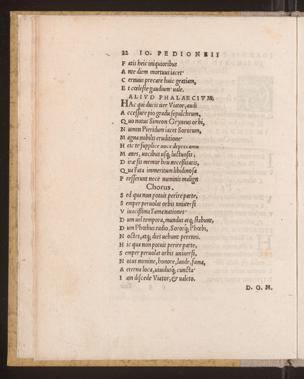 22 IO. PEDIONEII
F atis heic iniquioribus
A nte diem mortuus iacet:
C ernuus precare huic gratiam,
E t cælesti gaudium: vale.
ALIVD PHALAECIVM.
HAc qui ducis iter Viator, audi
A ccessure pio gradu sepulchrum,
Q uo notus Simeon Gryneus orbi,
N umen Pieridum iacet Sororum,
M agna nobilis eruditione:
H eic te supplice voce deprecamur
M anes, vocibus usq; luctuosis:
D iræ sis memor heu necessitatis,
Q uæ fata immeritum libidinosa
P resserunt nece numinis maligni
Chorus.
S ed qua non potuit perire parte,
S emper peruolat orbis vniuersi
V iuacissima fama nationes:
D um vel tempora, mundus atq; stabunt,
D um Phœbus radio, Sororq; Phœbi,
N octes, atq; dies vehunt perenni.
H ic qua non potuit perire parte,
S emper peruolat orbis uniuersi,
N otus nomine, honore, laude, fama,
A eterna loca, uiuidusq; cuncta
I am discede Viator, & valeto.
D. O. M.